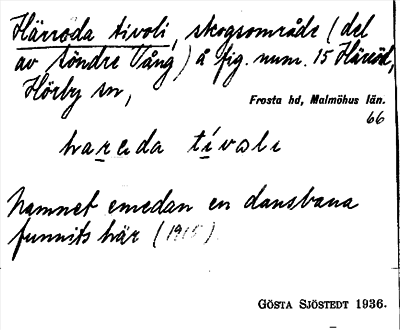 Härroda tivoli, skogsområde (del
av Söndre Vång) å fig. num. 15 Häröd,
Hörby sn,
Frosta hd, Malmöhus län.
66
hareda tivɔli
Namnet emedan en dansbana
funnits här (1915).
GÖSTA SJÖSTEDT 1936.